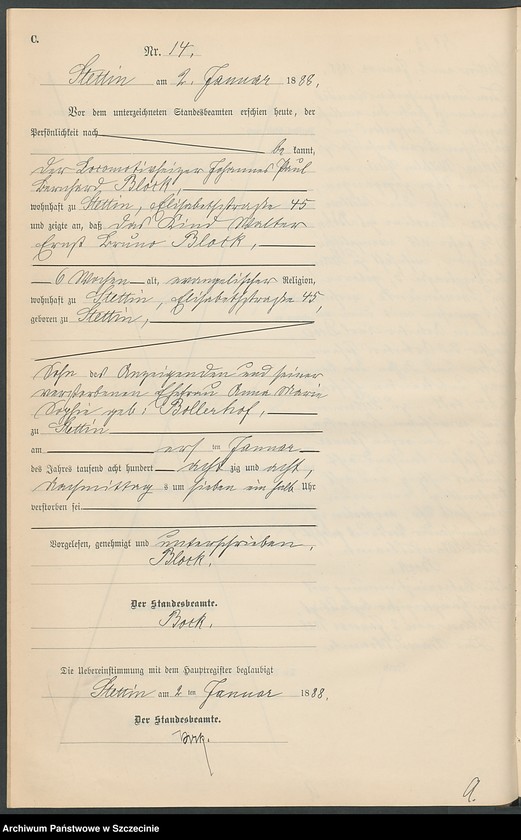 C.
Nr. 14.
Stettin am 2. Januar 1888.
Vor dem unterzeichneten Standesbeamten erschien heute, der
Persönlichkeit nach
be kannt,
der Locomotivheizer Johannes Paul
Bernhard Block,
wohnhaft zu Stettin, Elisabethstraße 45
und zeigte an, daß das Kind Walter
Ernst Bruno Block,
6 Wochen alt, evangelischer Religion,
wohnhaft zu Stettin, Elisabethstraße 45,
geboren zu Stettin,
Sohn des Anzeigenden und seiner
verstorbenen Ehefrau Anna Marie
Sophie geb: Bollerhof,
zu Stettin
am ersten Januar
des Jahres tausend acht hundert acht zig und acht,
Nachmittags um sieben ein halb Uhr
verstorben sei
Vorgelesen, genehmigt und unterschrieben.
Block.
Der Standesbeamte.
Bork.
Die Uebereinstimmung mit dem Hauptregister beglaubigt
Stettin am 2 ten Januar 1888.
Der Standesbeamte.
Bork.
Archiwum Państwowe w Szczecinie